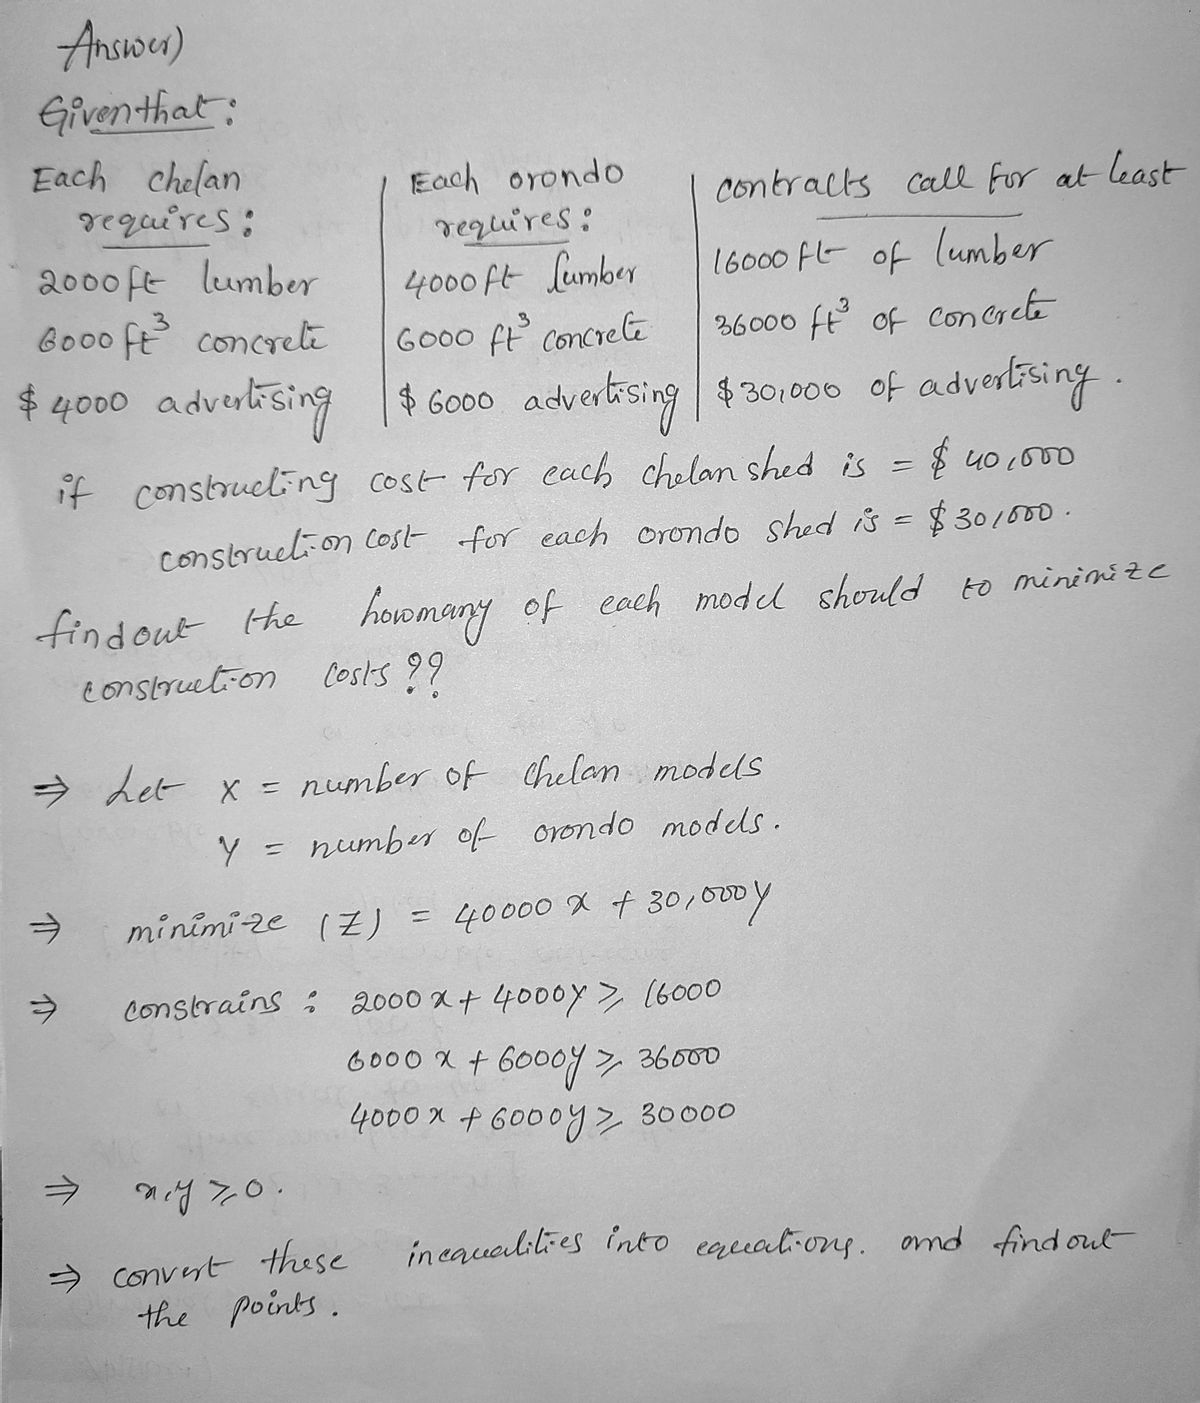 Answer)
Given that:
Each chelan
requires:
2000 ft lumber
6000 ft³ concrete
$ 4000 advertising
Each orondo
requires:
4000 ft lumber
6000 ft³ concrete
$ 6000 advertising
contracts call for at least
16000 ft of lumber
36000 ft³ of concrete
$ 30,000 of advertising.
if constructing cost for each chelan shed is = $ 40,000
construction cost for each orondo shed is = $ 30,000.
findout the howmany of each model should to minimize
construction costs ??
⇒ Let x = number of chelan models
y = number of orondo models.
⇒ minimize (Z) = 40000 x + 30,000 y
⇒ constrains : 2000 x + 4000y ≥ 16000
6000 x + 6000y ≥ 36000
4000 x + 6000y ≥ 30000
⇒ x,y ≥ 0.
⇒ convert these inequalities into equations. and findout
the points.